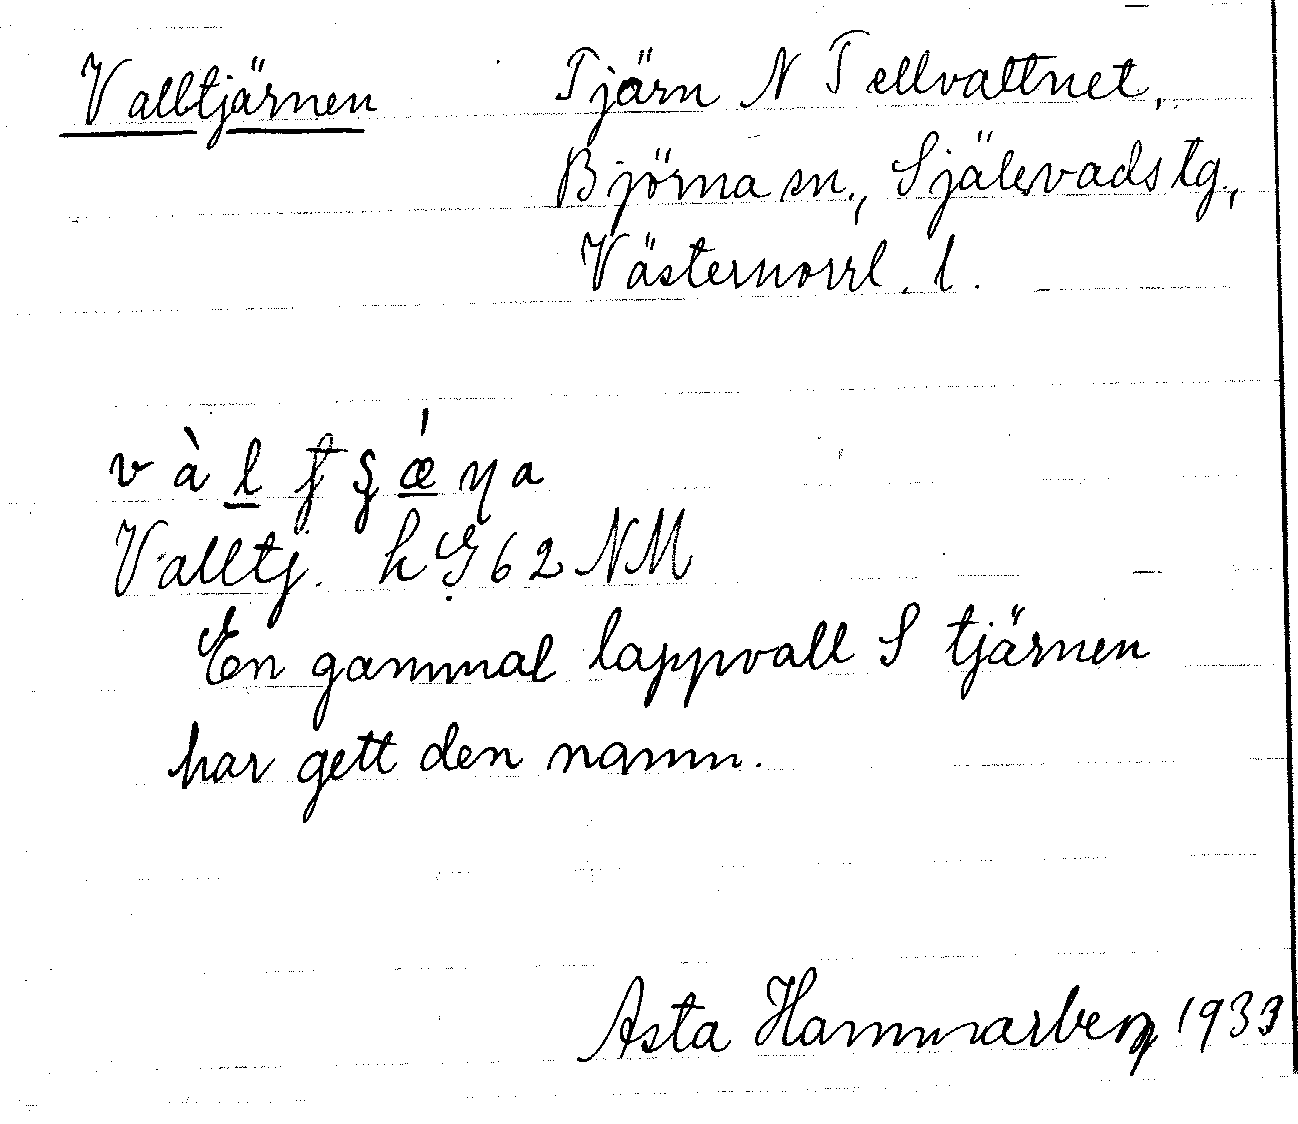 Valltjärnen Tjärn N Tellvattnet,
Björna sn., Själevads tg.,
Västernorrl. l.
Valltj. h G 62 NM
En gammal lappvall S tjärnen
har gett den namn.
Asta Hammarberg 1933